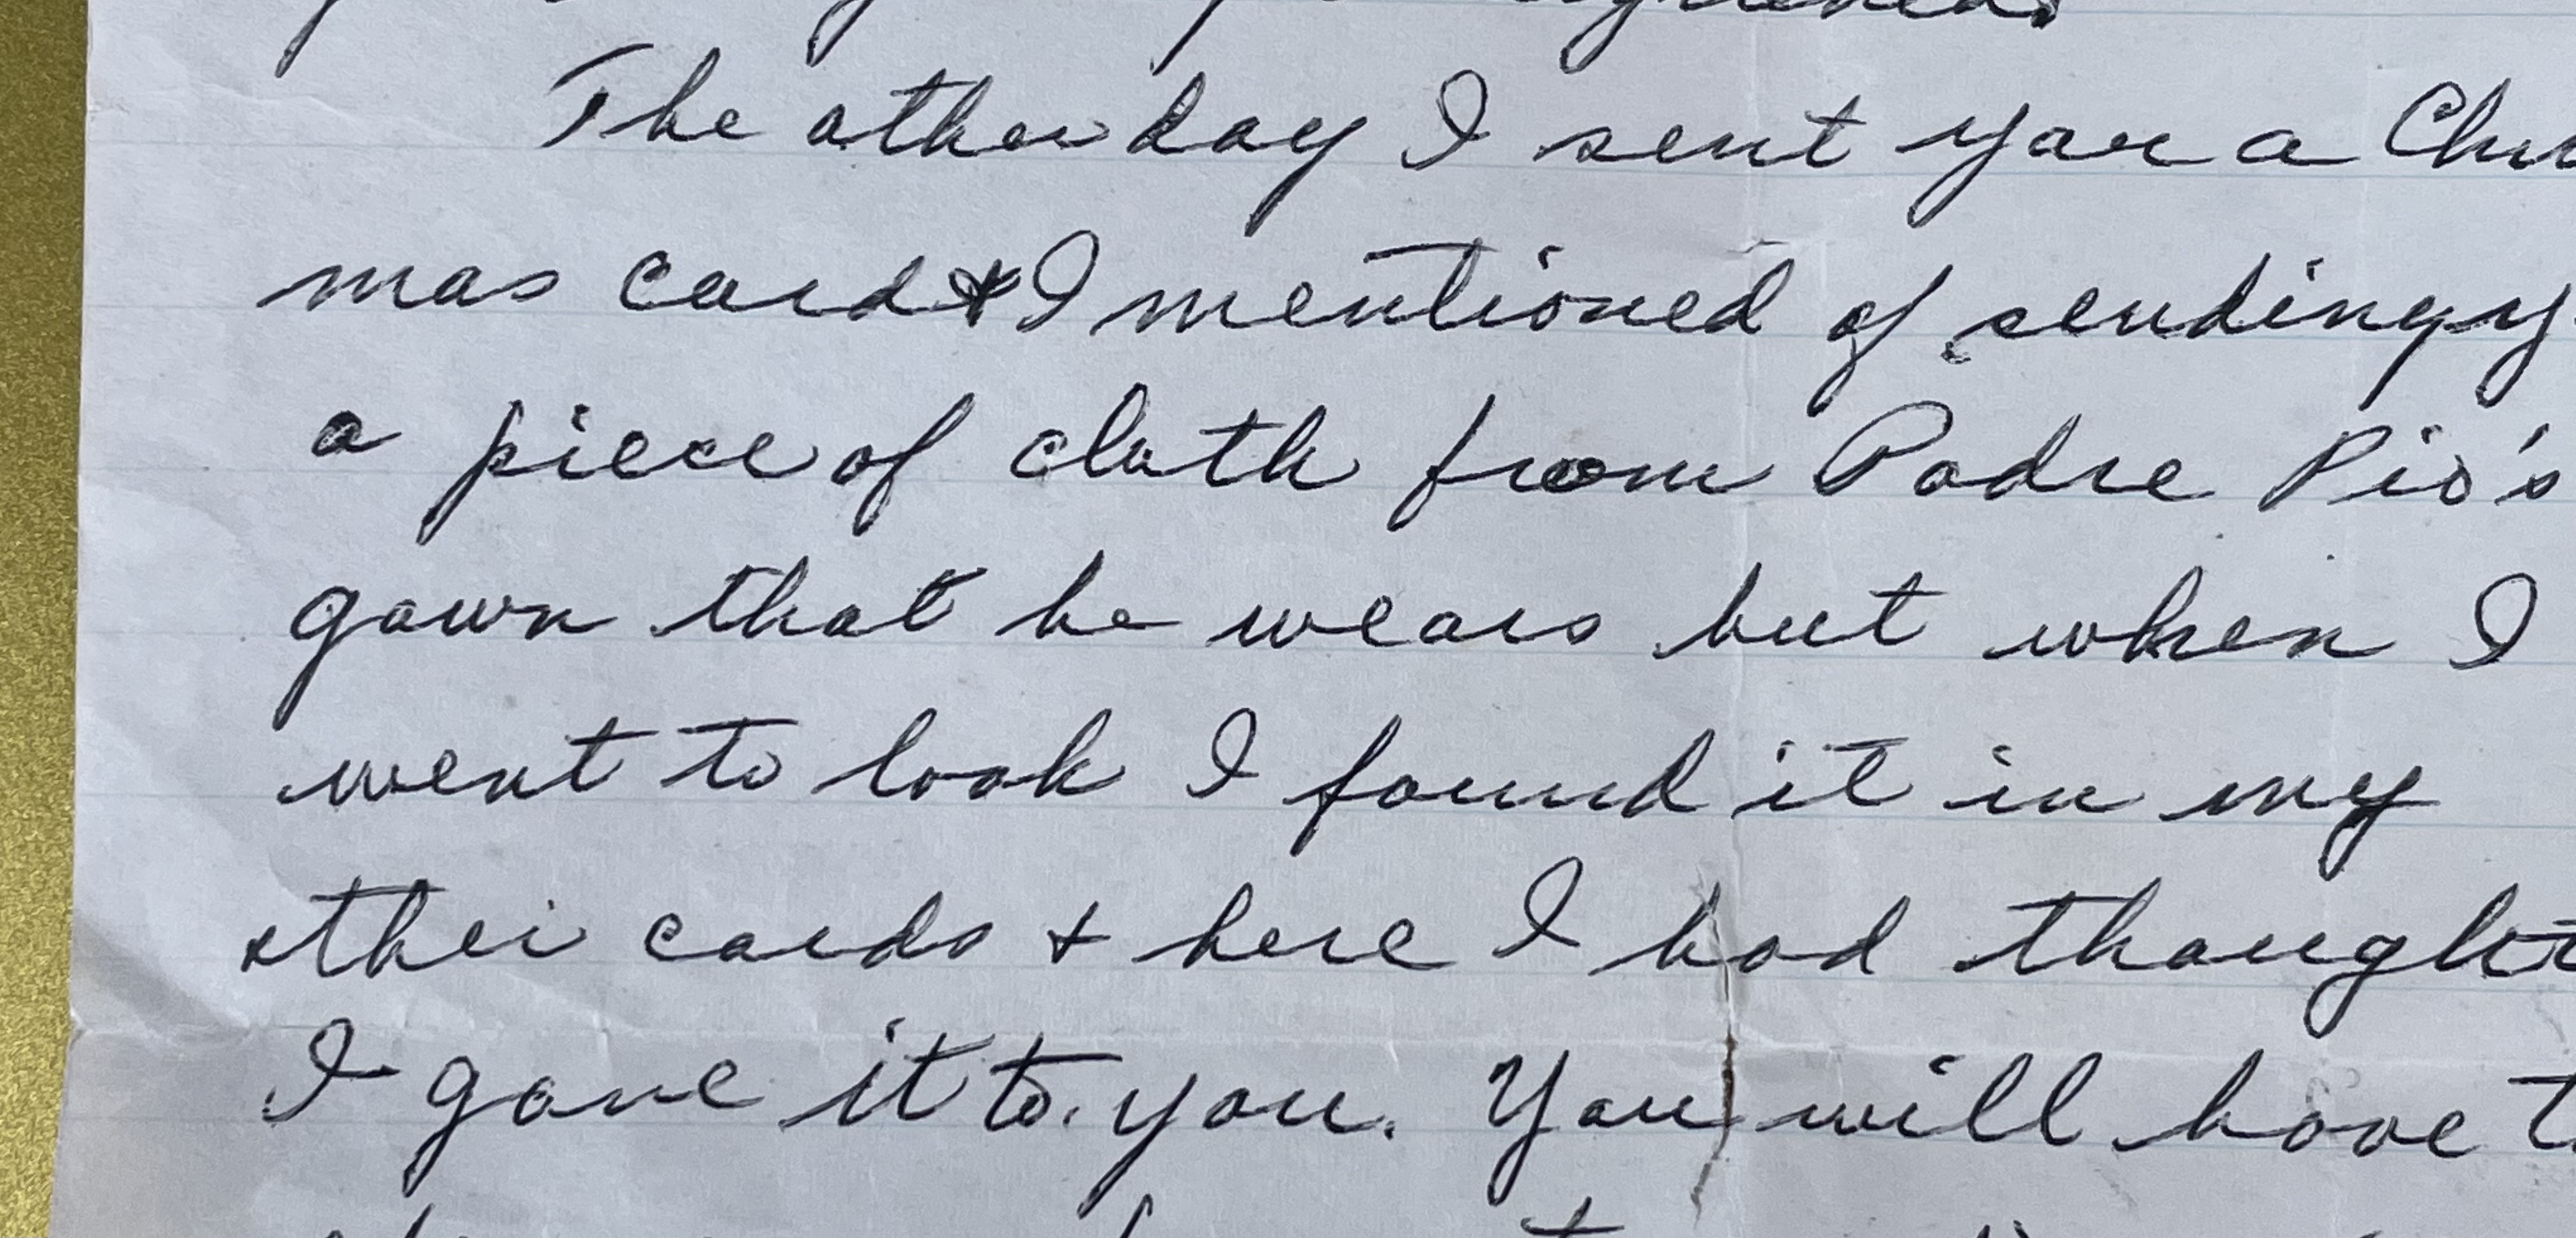 The other day I sent you a Chris
mas card & I mentioned of sending y
a piece of cloth from Padre Pio's
gown that he wears but when I
went to look I found it in my
other cards + here I had thought
I gave it to you. You will have t